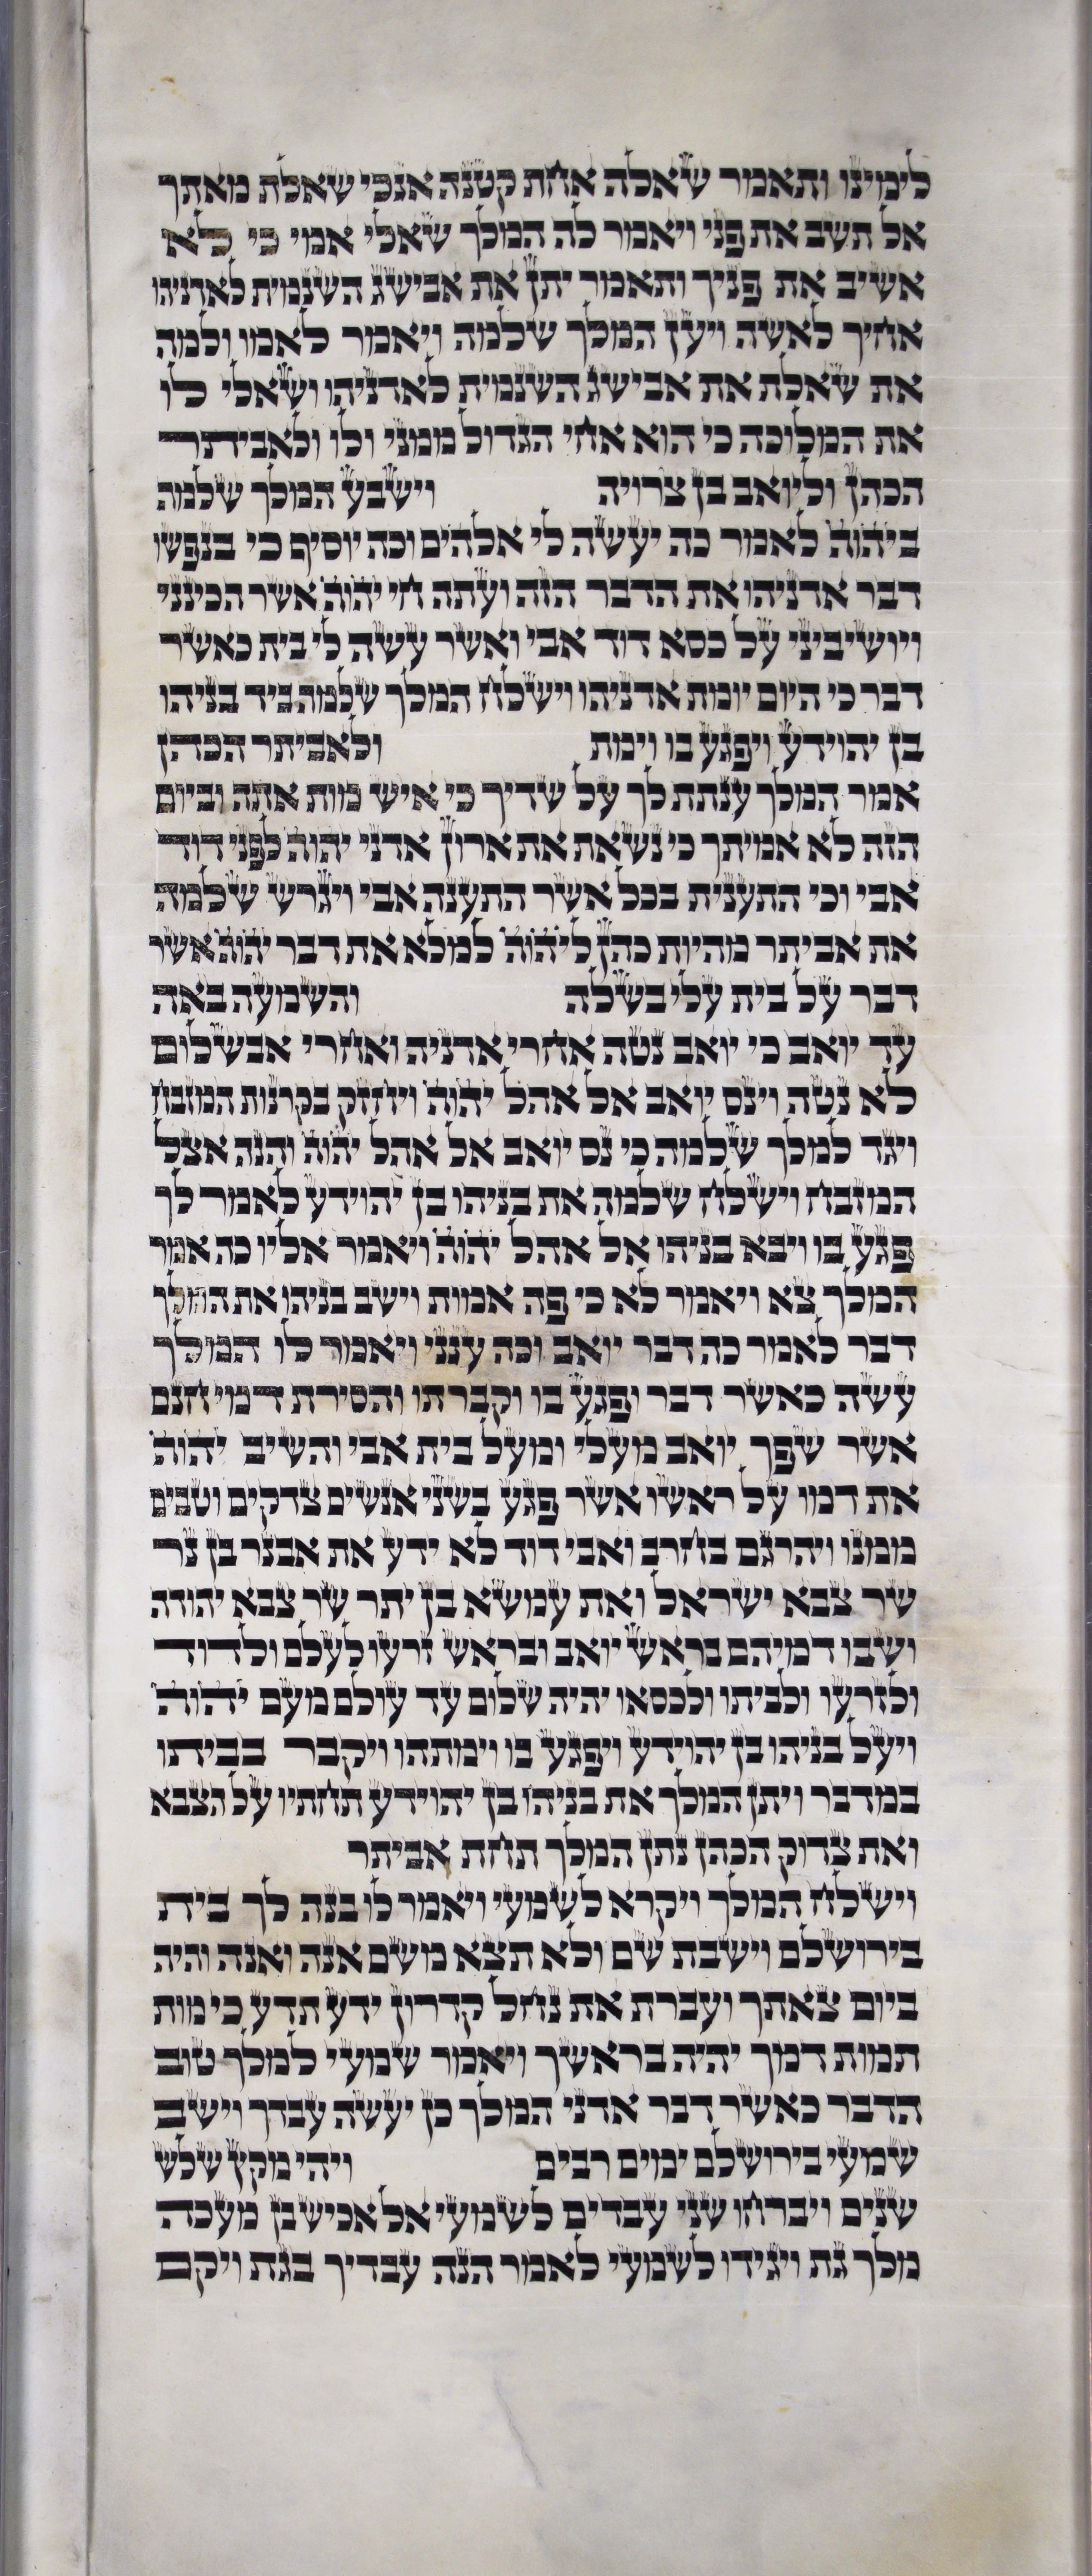 לימינו ותאמר שאלה אחת קטנה אנכי שאלת מאתך
אל תשב את פני ויאמר לה המלך שאלי אמי כי לא
אשיב את פניך ותאמר יתן את אבישג השנמית לאדניהו
אחיך לאשה ויען המלך שלמה ויאמר לאמו ולמה
את שאלת את אבישג השנמית לאדניהו ושאלי לו
את המלוכה כי הוא אחי הגדול ממני ולו ולאביתר
הכהן וליואב בן צרויה וישבע המלך שלמה
ביהוה לאמר כה יעשה לי אלהים וכה יוסיף כי בנפשו
דבר אדניהו את הדבר הזה ועתה חי יהוה אשר הכינני
ויושיביני על כסא דוד אבי ואשר עשה לי בית כאשר
דבר כי היום יומת אדניהו וישלח המלך שלמה ביד בניהו
בן יהוידע ויפגע בו וימת ולאביתר הכהן
אמר המלך ענתת לך על שדיך כי איש מות אתה וביום
הזה לא אמיתך כי נשאת את ארון אדני יהוה לפני דוד
אבי וכי התענית בכל אשר התענה אבי ויגרש שלמה
את אביתר מהיות כהן ליהוה למלא את דבר יהוה אשר
דבר על בית עלי בשלה והשמעה באה
עד יואב כי יואב נטה אחרי אדניה ואחרי אבשלום
לא נטה וינס יואב אל אהל יהוה ויחזק בקרנות המזבח
ויגד למלך שלמה כי נס יואב אל אהל יהוה והנה אצל
המזבח וישלח שלמה את בניהו בן יהוידע לאמר לך
פגע בו ויבא בניהו אל אהל יהוה ויאמר אליו כה אמר
המלך צא ויאמר לא כי פה אמות וישב בניהו את המלך
דבר לאמר כה דבר יואב וכה ענני ויאמר לו המלך
עשה כאשר דבר ופגע בו וקברתו והסירת דמי חנם
אשר שפך יואב מעלי ומעל בית אבי והשיב יהוה
את דמו על ראשו אשר פגע בשני אנשים צדקים וטבים
ממנו ויהרגם בחרב ואבי דוד לא ידע את אבנר בן נר
שר צבא ישראל ואת עמשא בן יתר שר צבא יהודה
ושבו דמיהם בראש יואב ובראש זרעו לעלם ולדוד
ולזרעו ולביתו ולכסאו יהיה שלום עד עולם מעם יהוה
ויעל בניהו בן יהוידע ויפגע בו וימתהו ויקבר בביתו
במדבר ויתן המלך את בניהו בן יהוידע תחתיו על הצבא
ואת צדוק הכהן נתן המלך תחת אביתר
וישלח המלך ויקרא לשמעי ויאמר לו בנה לך בית
בירושלם וישבת שם ולא תצא משם אנה ואנה והיה
ביום צאתך ועברת את נחל קדרון ידע תדע כי מות
תמות דמך יהיה בראשך ויאמר שמעי למלך טוב
הדבר כאשר דבר אדני המלך כן יעשה עבדך וישב
שמעי בירושלם ימים רבים ויהי מקץ שלש
שנים ויברחו שני עבדים לשמעי אל אכיש בן מעכה
מלך גת ויגידו לשמעי לאמר הנה עבדיך בגת ויקם